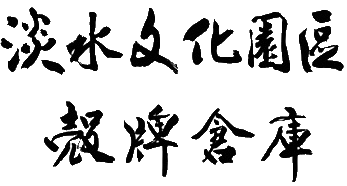 淡水文化園區
殼牌倉庫